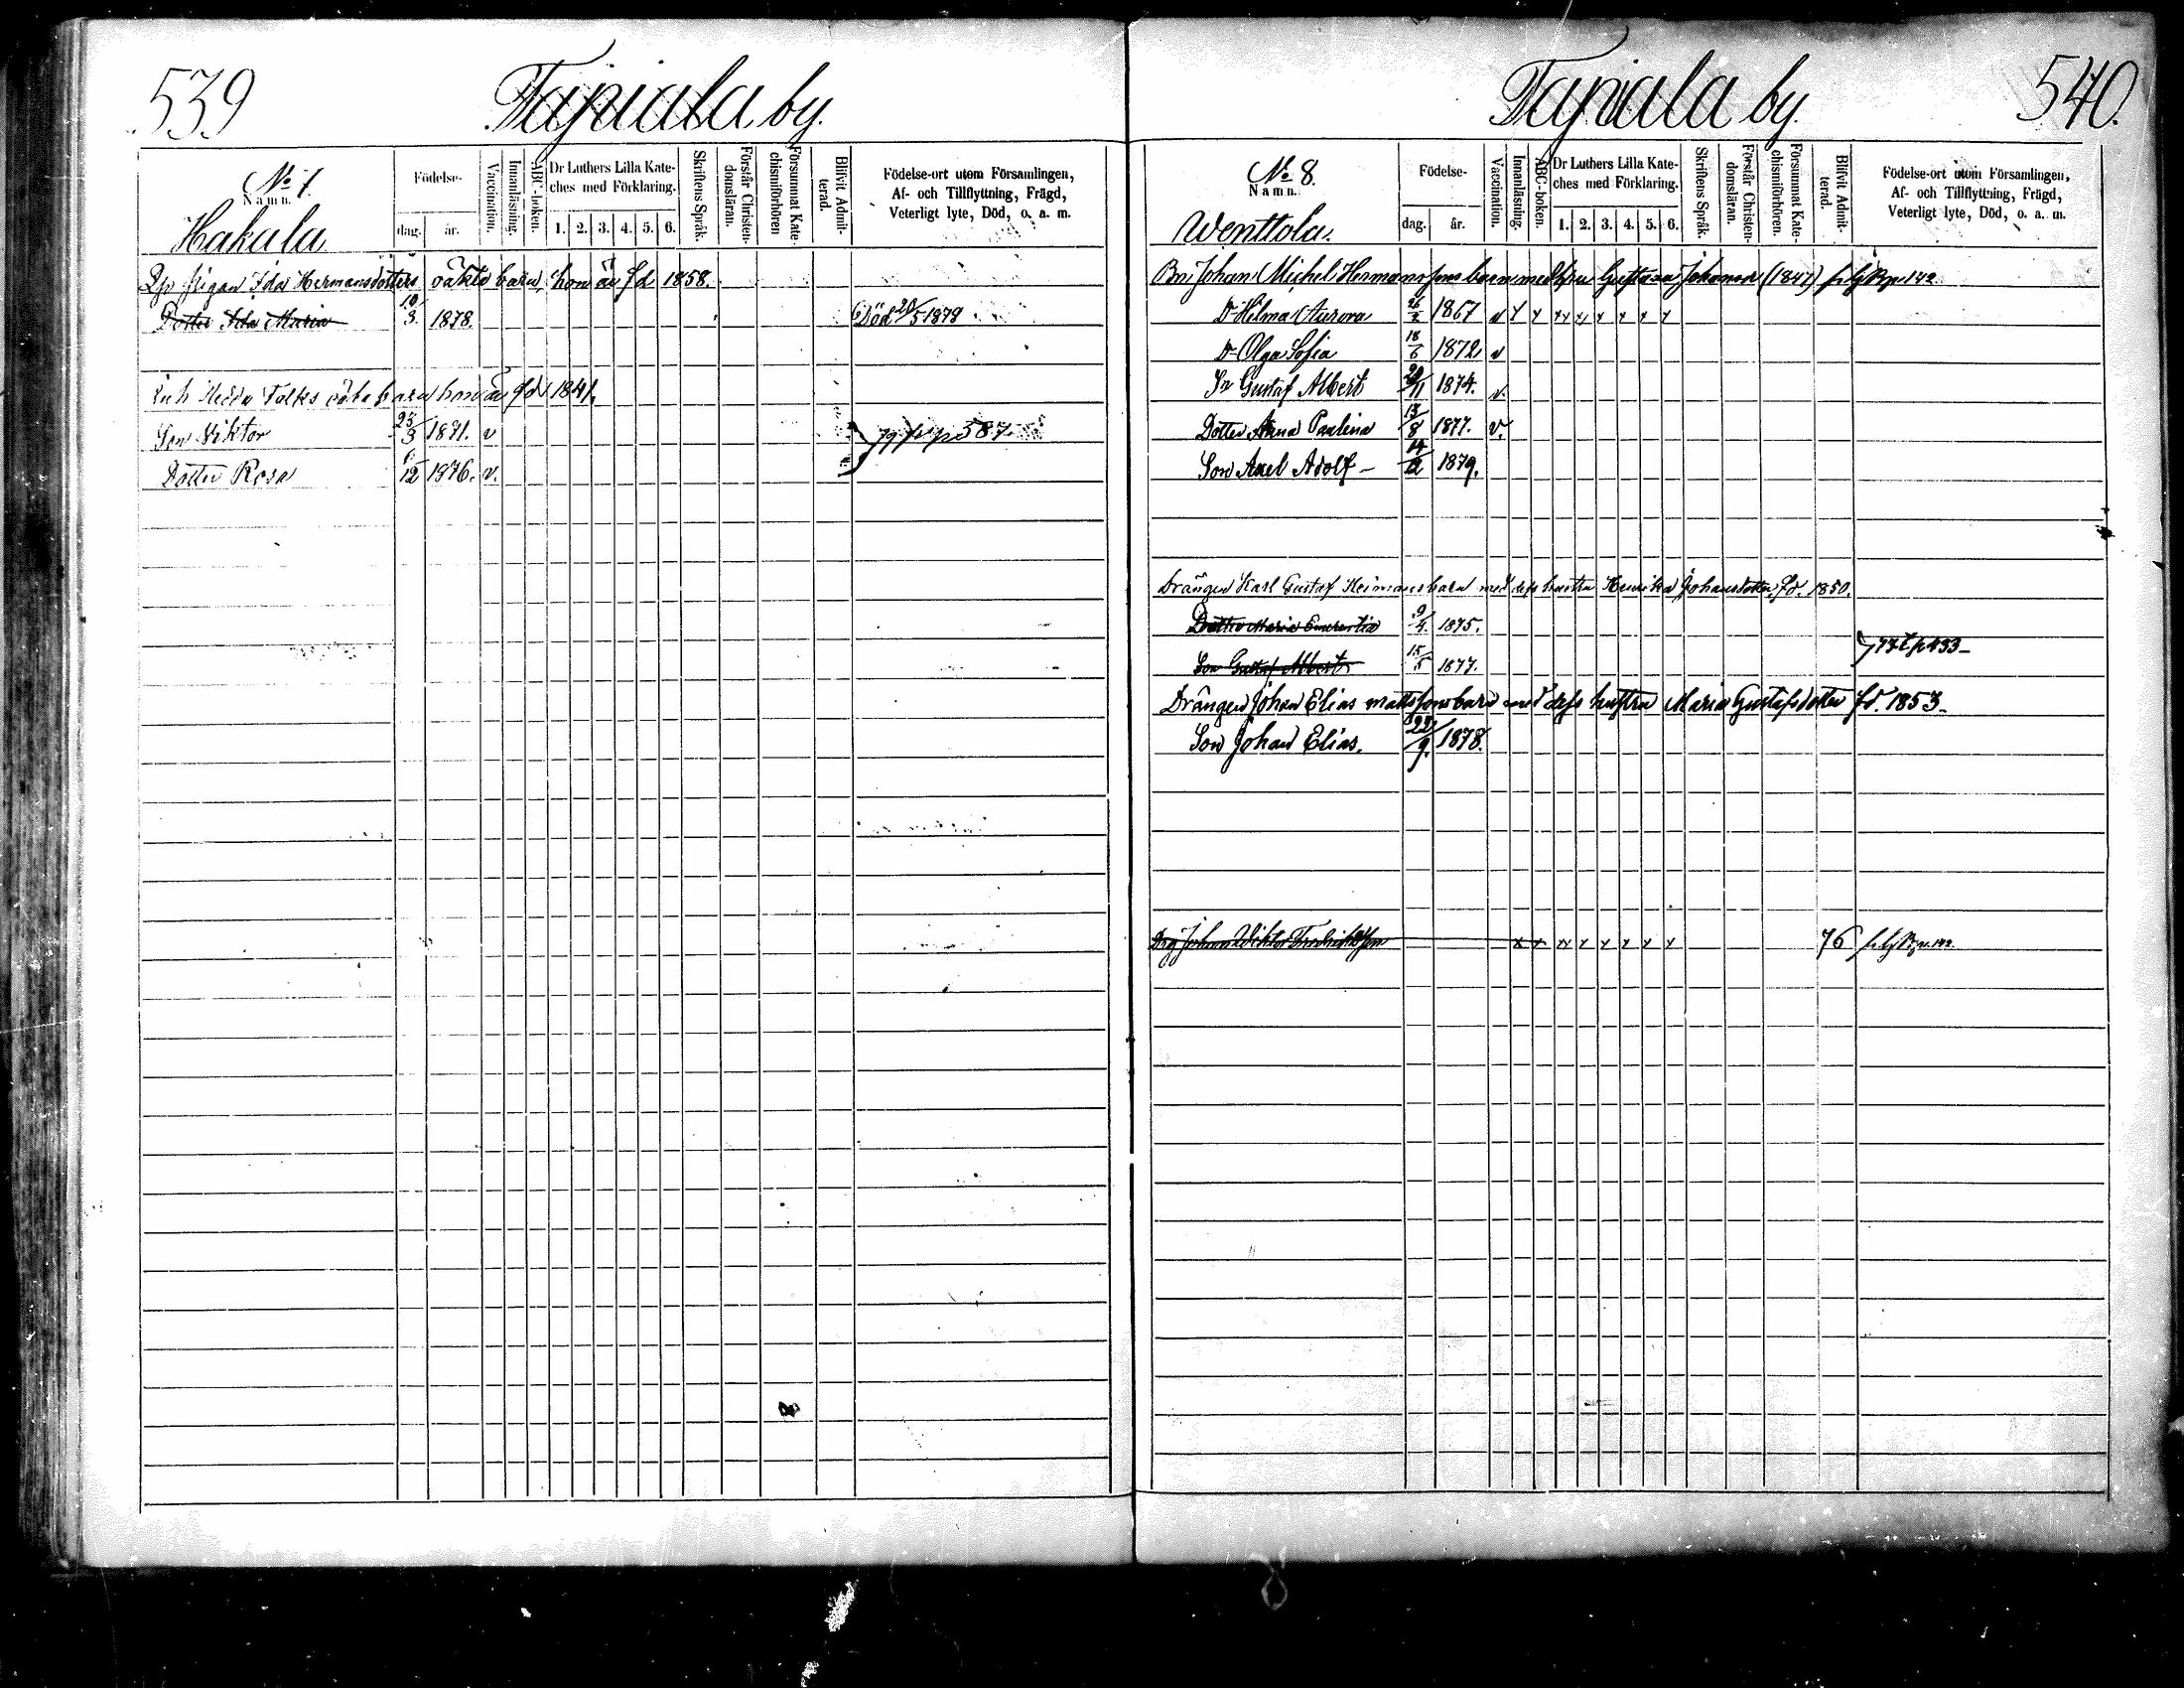 539
Tapiala by.
No 7.
Namn.
Hakala
Födelse-
dag.
år.
Vaccination.
Innanläsning.
ABC-boken.
Dr Luthers Lilla Kate-
ches med Förklaring.
1. 2. 3. 4. 5. 6.
Skriftens Språk.
Förstår Christen-
domsläran.
Försummat Kate-
chismiförhören
Blifvit Admit-
terad.
Födelse-ort utom Församlingen,
Af- och Tillflyttning, Frägd,
Veterligt lyte, Död, o. a. m.
pigan Ida Hermansdotters oäkta barn, hon är fd 1858.
Dotter Ida Maria 10/3. 1878. Död 20/5 1878
Inh Hedda Falks oäkta barn hon är fd 1841.
Son Viktor 25/3 1871. v
Dotter Rosa 12 1876. v.
79 fr p 587.
540.
Tapiala by.
No 8.
Namn.
Wenttola.
Födelse-
dag.
år.
Vaccination.
Innanläsning.
ABC-boken.
Dr Luthers Lilla Kate-
ches med Förklaring.
1. 2. 3. 4. 5. 6.
Skriftens Språk.
Förstår Christen-
domsläran.
Försummat Kate-
chismiförhören.
Blifvit Admit-
terad.
Födelse-ort utom Församlingen,
Af- och Tillflyttning, Frägd,
Veterligt lyte, Död, o. a. m.
Bn Johan Michel Hermanssons barn med hu Gustava Johansd (1847) fr. G Bp. 142
Dr Hilma Aurora 1867 v x x xx x x x x x
Dr Olga Sofia 18/6 1872 v
Sn Gustaf Albert 29/11 1874. v.
Dotter Anna Paulina 13/8 1877. v.
Son Axel Adolf – 14/12 1879.
Drängen Karl Gustaf Heimans barn med dess hustru Henrika Johansdotter fd. 1850.
Dotter Maria Emerentia 9/4. 1875.
Son Gustaf Albert 15/5 1877.
77 t p 433 –
Drängen Johan Elias Mattssons barn med dess hustru Maria Gustafsdotter fd. 1853 –
Son Johan Elias. 22/9. 1878.
Drg Johan Wiktor Fredriksson x x xx x x x x x 76 fr. G Bp. 142.